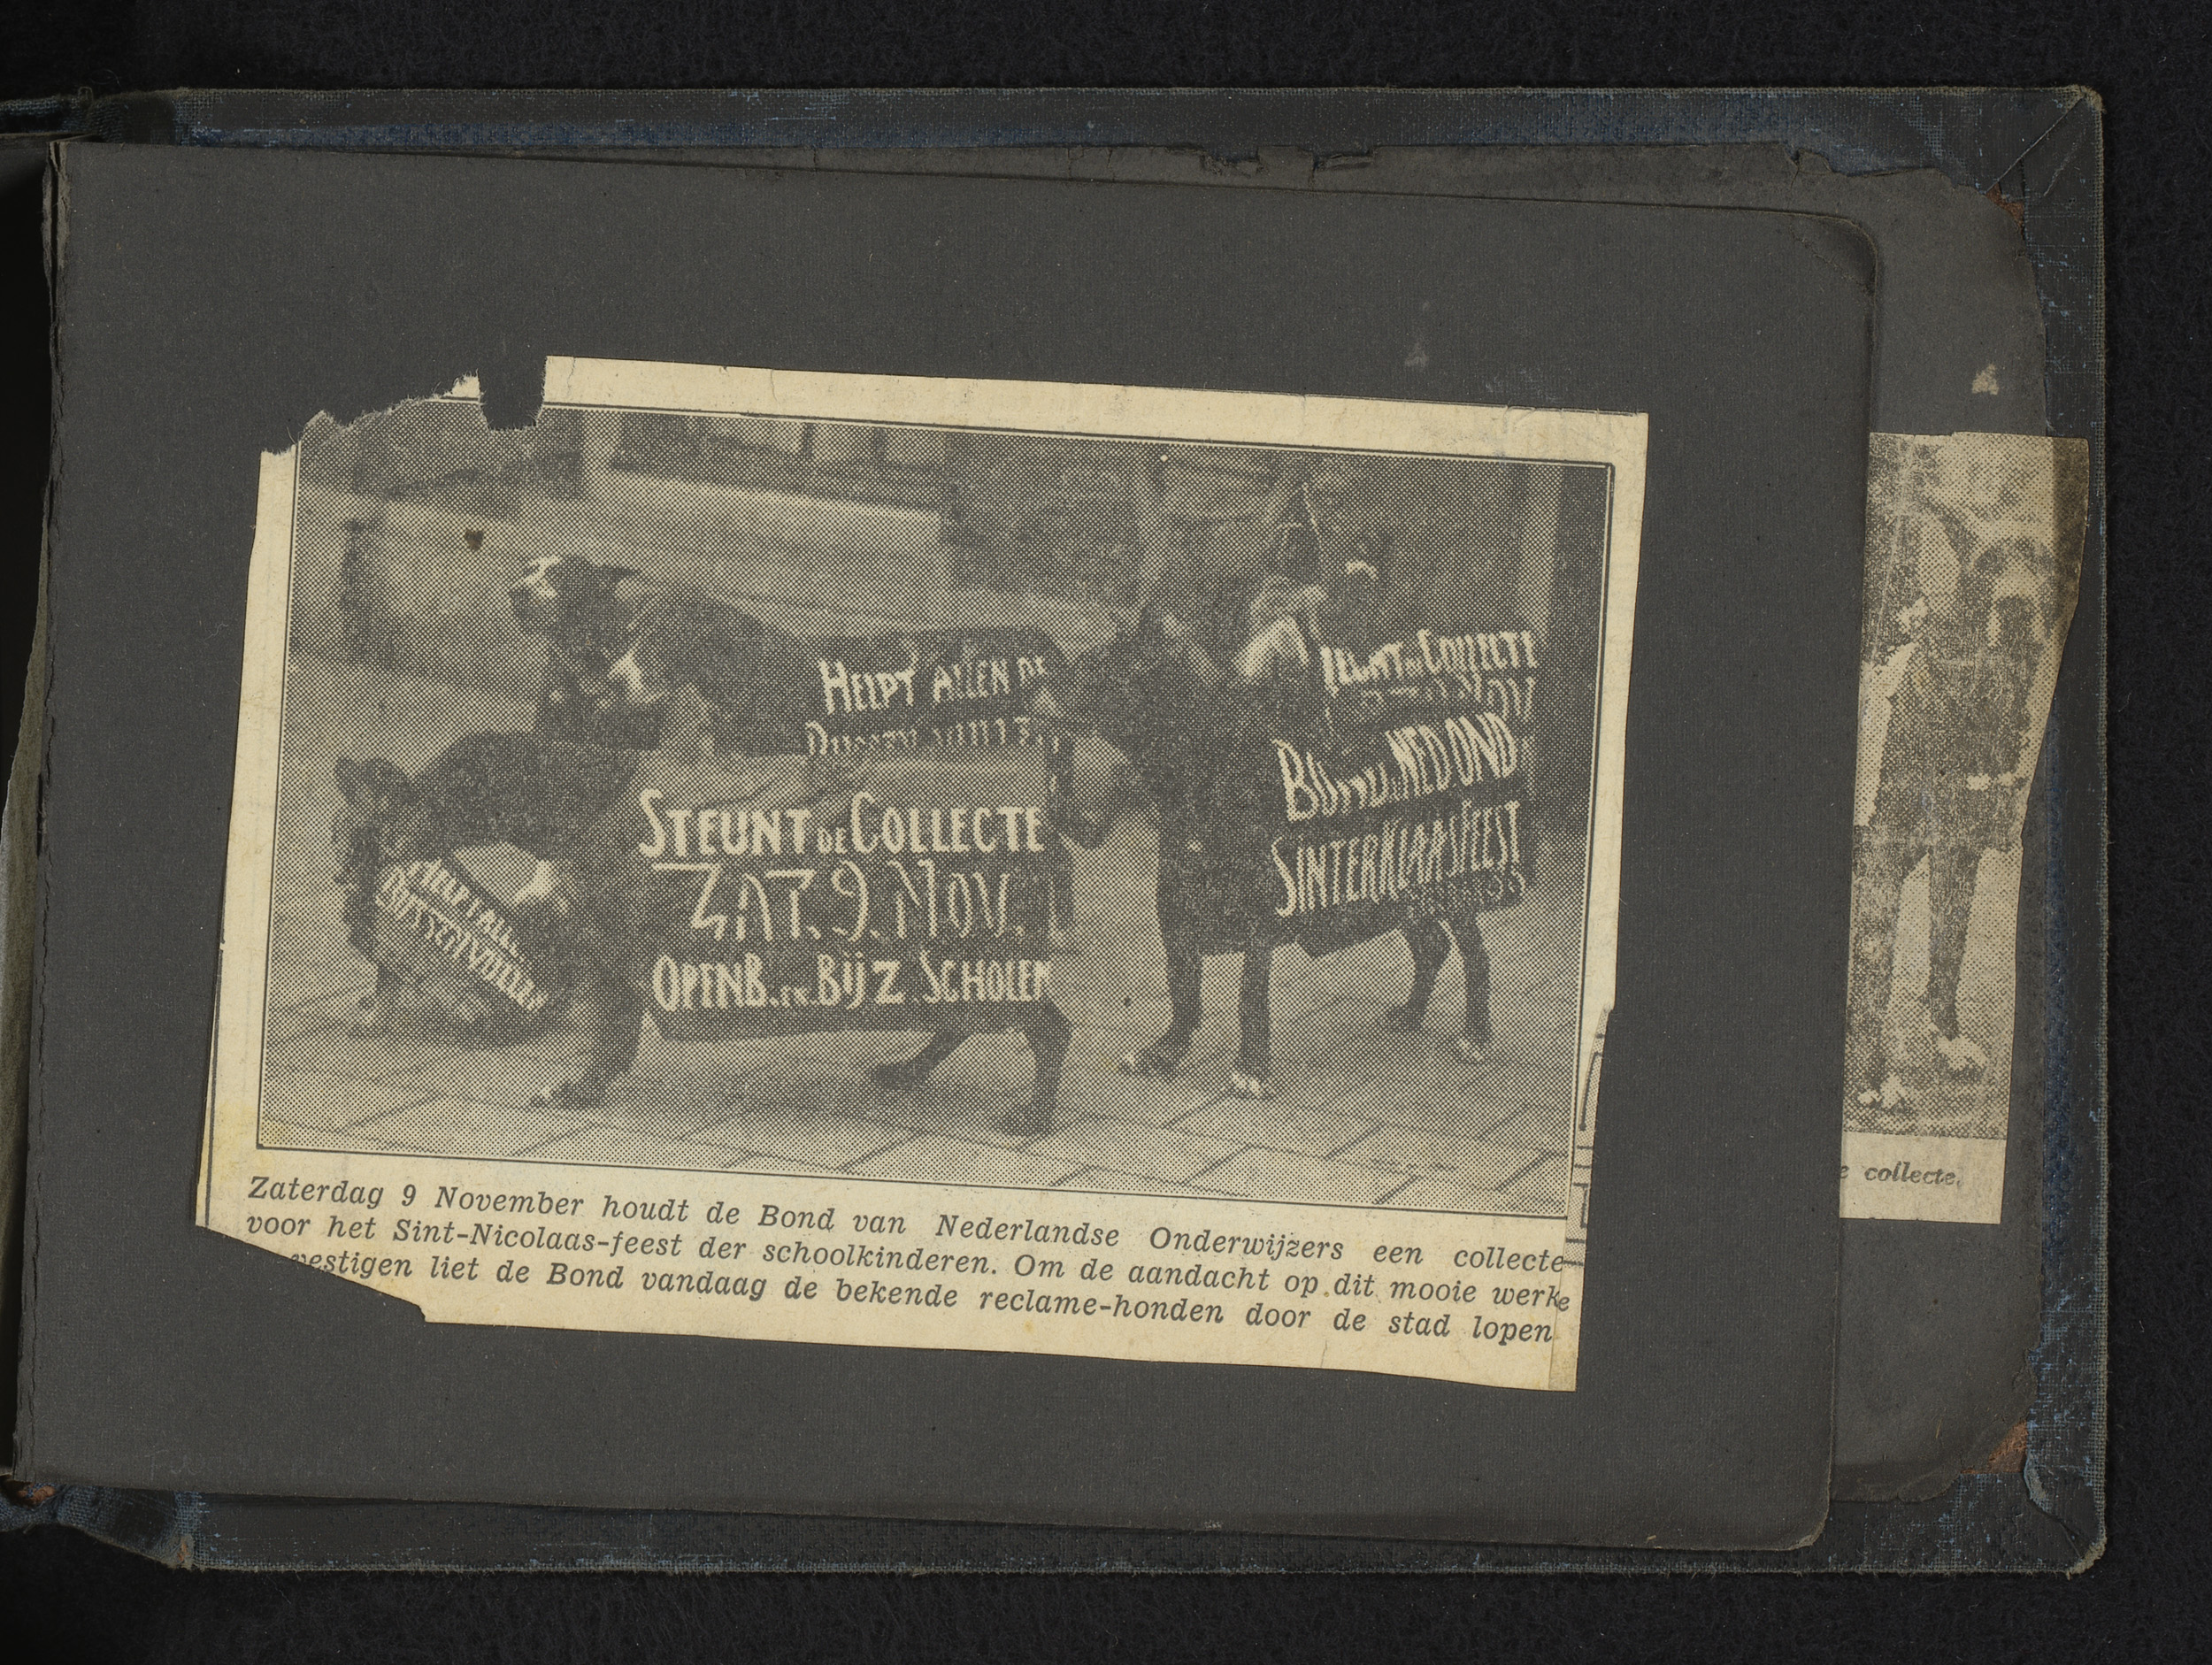 HELPT ALLEN DE
STEUNT DE COLLECTE
ZAT. 9. NOV.
OPENB. EN. BIJZ. SCHOLEN
COLLECTE
NOV
BOND.V.NED OND.
SINTERKLAASFEEST
Zaterdag 9 November houdt de Bond van Nederlandse Onderwijzers een collecte
voor het Sint-Nicolaas-feest der schoolkinderen. Om de aandacht op dit mooie werke
vestigen liet de Bond vandaag de bekende reclame-honden door de stad lopen
e collecte.